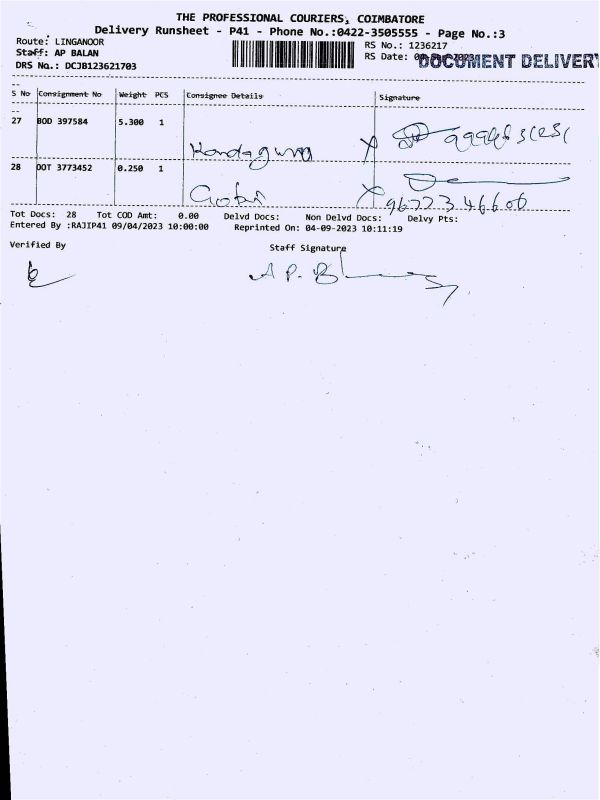 THE PROFESSIONAL COURIERS, COIMBATORE
Delivery Runsheet - P41 - Phone No.:0422-3505555 - Page No.:3
Route: LINGANOOR
RS No.: 1236217
Staff: AP BALAN
RS Date:
DOCUMENT DELIVERY
DRS No.: DCJB123621703
S No Consignment No Weight PCS Consignee Details Signature
27 BOD 397584 5.300 1
28 DOT 3773452 0.250 1
Gobi
Tot Docs: 28 Tot COD Amt: 0.00 Delvd Docs: Non Delvd Docs: Delvy Pts:
Entered By :RAJIP41 09/04/2023 10:00:00 Reprinted On: 04-09-2023 10:11:19
Verified By Staff Signature
A P. B